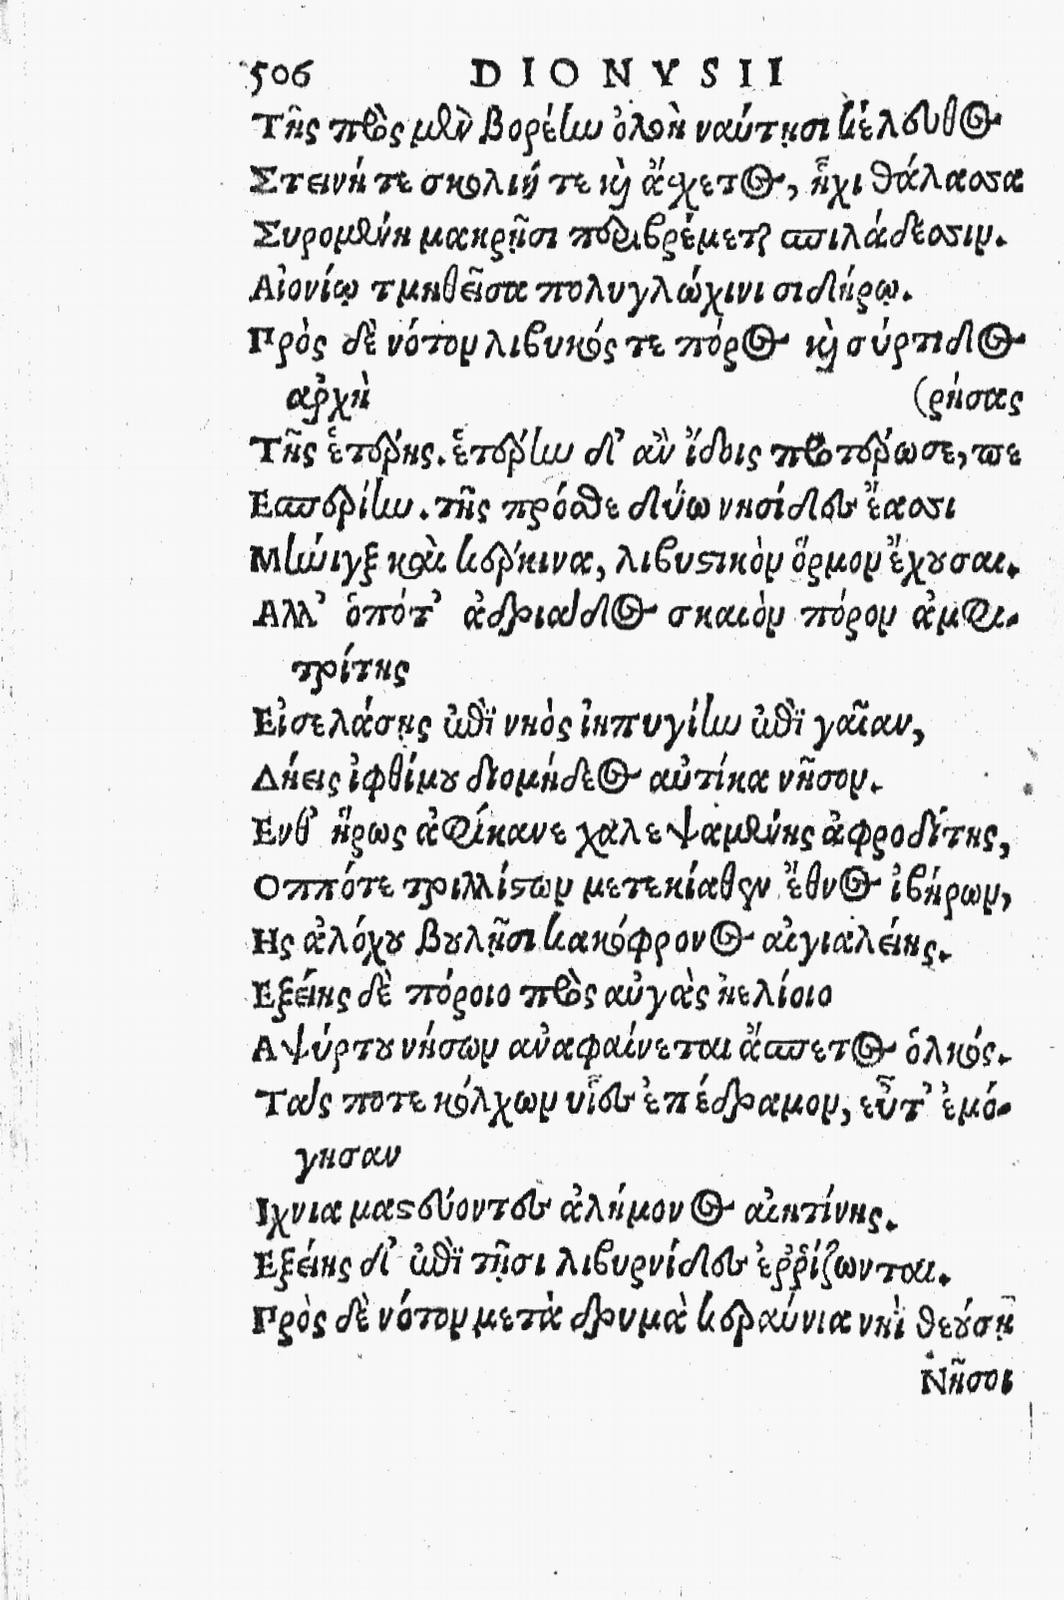 506 DIONYSII
Τῆς πρὸς μὲν βορέην ὀλοὴ ναύτῃσι κέλευθος
Στεινή τε σκολιή τε καὶ ἄσχετος, ἧχι θάλασσα
Συρομένη μακρῇσι περιβρέμεται σπιλάδεσσιν.
Αἰονίῳ τμηθεῖσα πολυγλώχινι σιδήρῳ.
Πρὸς δὲ νότον λιβυκός τε πόρος καὶ σύρτιδος
ἀρχὴ (ρήσας
Τῆς ἑτέρης. ἑτέρην δ' ἂν ἴδοις προτέρωσε, πε
Εσπερίην. τῆς πρόσθε δύω νησίδες ἔασσι
Μῆνιγξ καὶ κέρκινα, λιβυστικὸν ὅρμον ἔχουσαι.
Αλλ' ὁπότ' ἀδριάδος σκαιὸν πόρον ἀμφι-
τρίτης
Εἰσελάσῃς ἐπὶ νηὸς ἰηπυγίην ἐπὶ γαῖαν,
Δήεις ἰφθίμου διομήδεος αὐτίκα νῆσον.
Ενθ' ἥρως ἀφίκανε χαλεψαμένης ἀφροδίτης,
Οππότε τριλλίστων μετεκίαθεν ἔθνος ἰβήρων,
Ης ἀλόχου βουλῇσι κακόφρονος αἰγιαλείης.
Εξείης δὲ πόροιο πρὸς αὐγὰς ἠελίοιο
Αψύρτου νήσων ἀναφαίνεται ἄσπετος ὁλκός.
Τάς ποτε κόλχων υἷες ἐπέδραμον, εὖτ' ἐμό-
γησαν
Ιχνια μαστεύοντες ἀλήμονος αἰητίνης.
Εξείης δ' ἐπὶ τῇσι λιβυρνίδες ἐῤῥίζωνται.
Πρὸς δὲ νότον μετὰ δρυμὰ κεραύνια νηὶ θεούσῃ
Νῆσοι